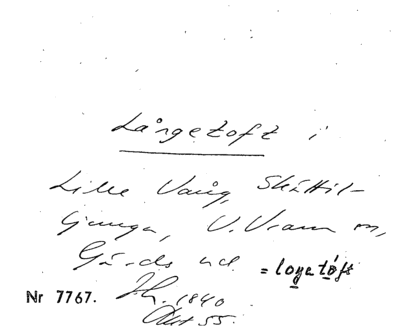 Långetoft i
Lille Vång, Skättil-
ljunga, V. Vram sn,
Gärds hd. = logetoft
Nr 7767. Ih. 1840
Akt 55.